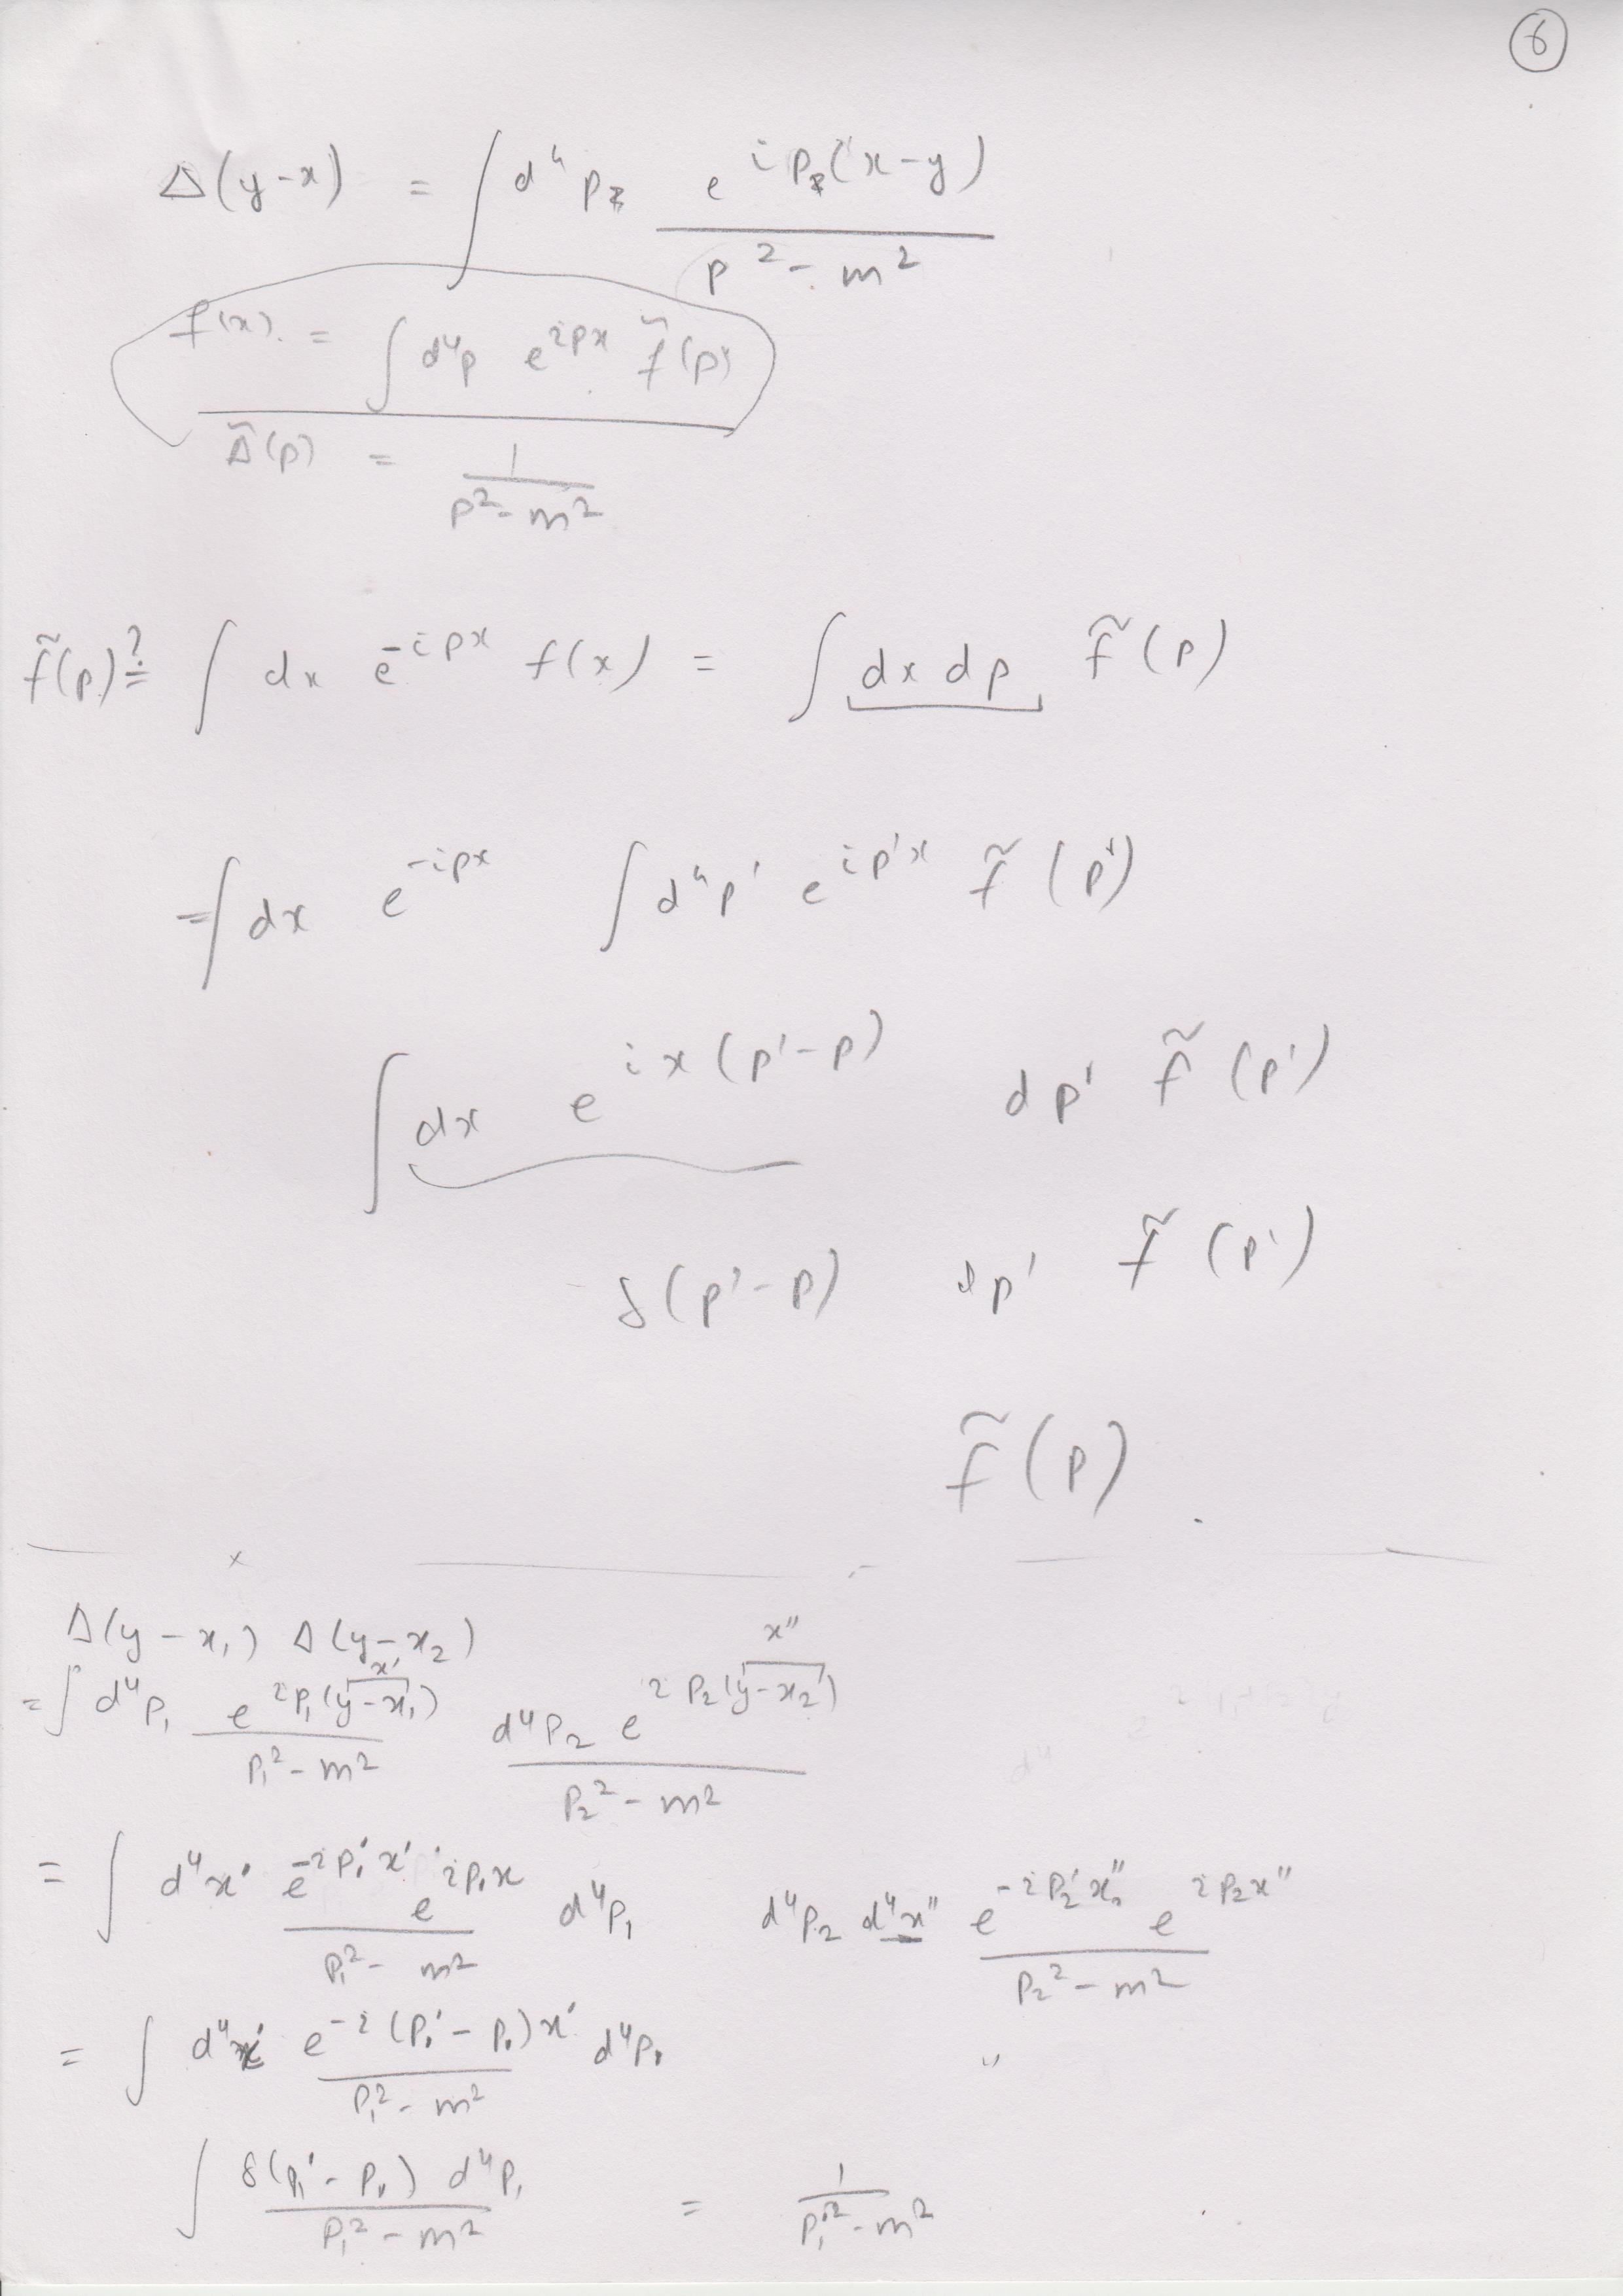 6
Δ(y-x) = ∫ d⁴p₂ e^{i p₂(x-y)} / p² - m²
f(x) = ∫ d⁴p e^{ipx} f̃(p)
Δ̃(p) = 1 / p² - m²
f̃(p) ?= ∫ dx e^{-ipx} f(x) = ∫ dx dp f̃(p)
= ∫ dx e^{-ipx} ∫ d⁴p' e^{ip'x} f̃(p')
∫ dx e^{ix(p'-p)} dp' f̃(p')
δ(p'-p) dp' f̃(p')
f̃(p)
x
Δ(y-x₁) Δ(y-x₂)
x' x''
= ∫ d⁴p₁ e^{ip₁(y-x₁)} / p₁² - m² d⁴p₂ e^{ip₂(y-x₂)} / p₂² - m²
= ∫ d⁴x' e^{-ip₁'x'} e^{ip₁x} / p₁² - m² d⁴p₁ d⁴p₂ d⁴x'' e^{-ip₂'x''} e^{ip₂x''} / p₂² - m²
= ∫ d⁴x' e^{-i(p₁'-p₁)x'} / p₁² - m² d⁴p₁ "
∫ δ(p₁'-p₁) d⁴p₁ / p₁² - m² = 1 / p₁'² - m²